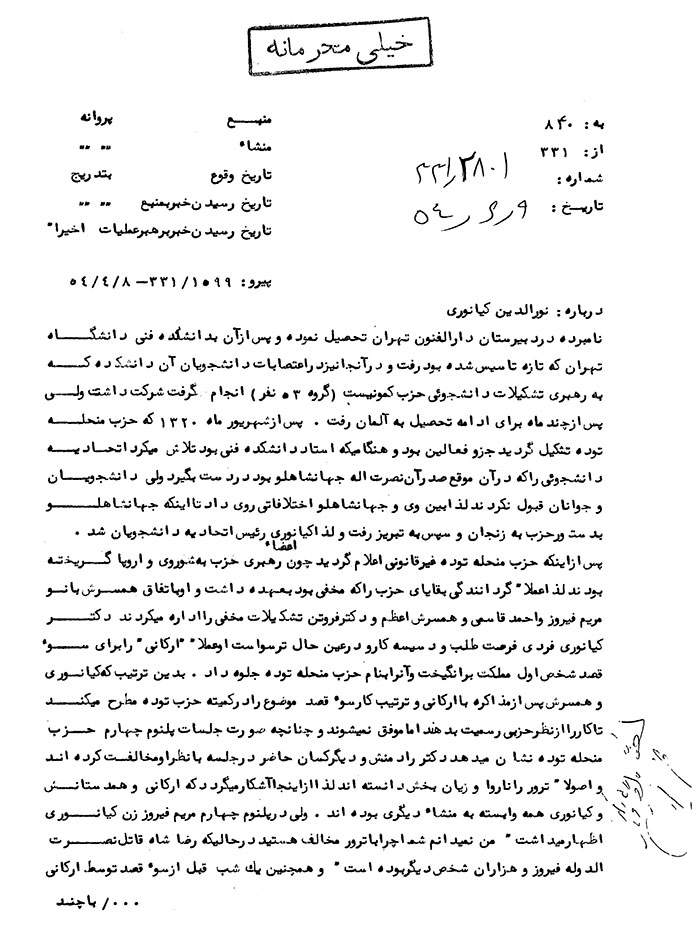 خیلی محرمانه
به: ۸۴۰
از: ۳۳۱
شماره:
تاریخ: ۵۴٫۶٫۹
منبع پروانه
منشاء " "
تاریخ وقوع بتدریج
تاریخ رسیدن خبر بمنبع " "
تاریخ رسیدن خبر برهبر عملیات اخیرا"
پیرو: ۳۳۱/۱۵۹۹-۵۴/۴/۸
درباره: نورالدین کیانوری
نامبرده در دبیرستان دارالفنون تهران تحصیل نموده و پس از آن بدانشکده فنی دانشگاه
تهران که تازه تاسیس شده بود رفت و در آنجا نیز در اعتصابات دانشجویان آن دانشکده که
به رهبری تشکیلات دانشجوئی حزب کمونیست (گروه ۵۳ نفر) انجام گرفت شرکت داشت ولی
پس از چند ماه برای ادامه تحصیل به آلمان رفت . پس از شهریور ماه ۱۳۲۰ که حزب منحله
توده تشکیل گردید جزو فعالین بود و هنگامیکه استاد دانشکده فنی بود تلاش میکرد اتحادیه
دانشجوئی را که در آن موقع صدر آن نصرت اله جهانشاهلو بود در دست بگیرد ولی دانشجویان
و جوانان قبول نکردند لذا بین وی و جهانشاهلو اختلافاتی روی داد تا اینکه جهانشاهلو
بدستور حزب به زنجان و سپس به تبریز رفت و لذا کیانوری رئیس اتحادیه دانشجویان شد .
پس از اینکه حزب منحله توده غیرقانونی اعلام گردید چون اعضاء رهبری حزب به شوروی و اروپا گریخته
بودند لذا عملا" گردانندگی بقایای حزب را که مخفی بود بعهده داشت و او باتفاق همسرش بانو
مریم فیروز و احمد قاسمی و همسرش اعظم و دکتر فروتن تشکیلات مخفی را اداره میکردند دکتر
کیانوری فردی فرصت طلب و دسیسه کار و در عین حال ترسو است او عملا" "ارکانی" را برای سوء
قصد شخص اول مملکت برانگیخت و آنرا بنام حزب منحله توده جلوه داد . بدین ترتیب که کیانوری
و همسرش پس از مذاکره با ارکانی و ترتیب کار سوء قصد موضوع را در کمیته حزب توده مطرح میکنند
تا کار را از نظر حزبی رسمیت بدهند اما موفق نمیشوند و چنانچه صورت جلسات پلنوم چهارم حزب
منحله توده نشان میدهد دکتر رادمنش و دیگر کسان حاضر در جلسه با نظر او مخالفت کرده اند
و اصولا" ترور را ناروا و زیان بخش دانسته اند لذا از اینجا آشکار میگردد که ارکانی و همدستانش
و کیانوری همه وابسته به منشاء دیگری بوده اند . ولی در پلنوم چهارم مریم فیروز زن کیانوری
اظهار میداشت " من نمیدانم شما چرا با ترور مخالف هستید در حالیکه رضا شاه قاتل نصرت
الدوله فیروز و هزاران شخص دیگر بوده است " و همچنین یک شب قبل از سوء قصد توسط ارکانی
با چند /۰۰۰